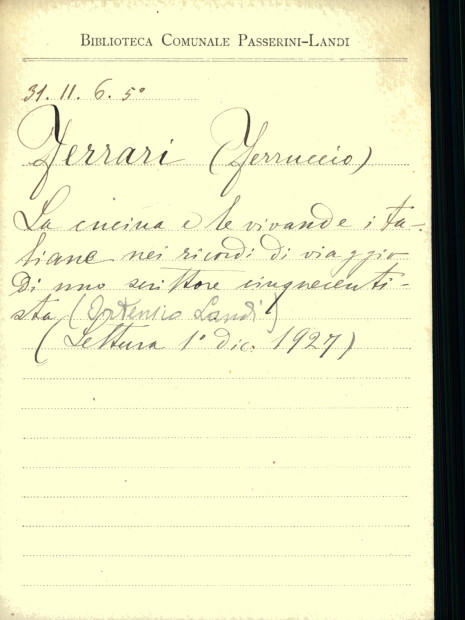 BIBLIOTECA COMUNALE PASSERINI-LANDI
31. II. 6. 5°
Ferrari (Ferruccio)
La cucina e le vivande ita-
liane nei ricordi di viaggio
di uno scrittore cinquecenti-
sta (Ortensio Landi)
(Lettura 1° dic. 1927)